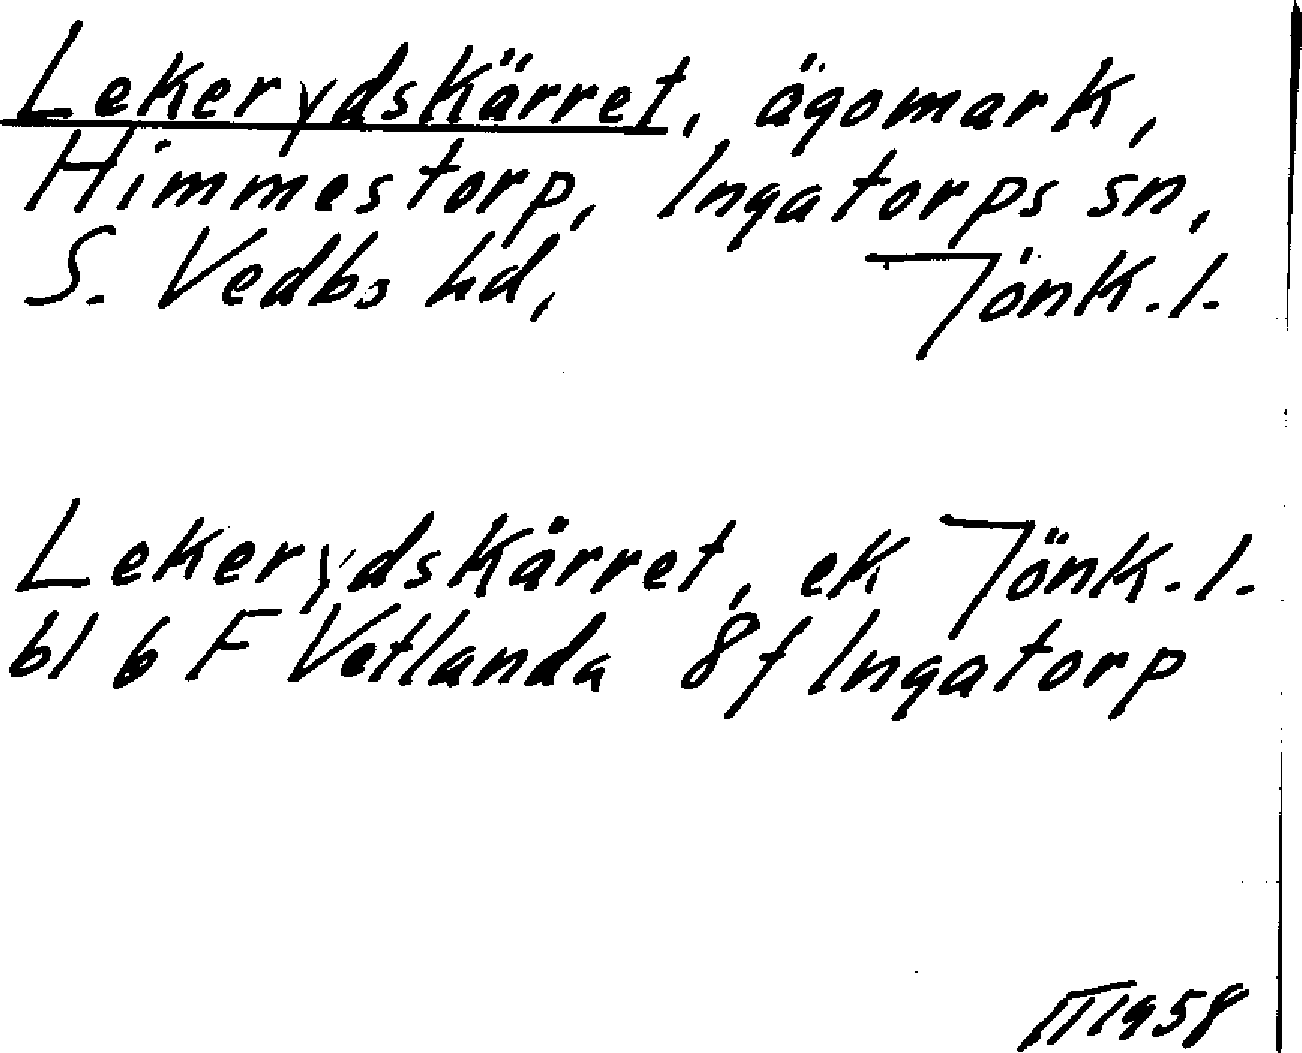 Lekerydskärret, ägomark,
Himmestorp, Ingatorps sn,
S. Vedbo hd, Jönk. l.
Lekerydskärret, ek Jönk. l.
bl 6 F Vetlanda 8f Ingatorp
1958